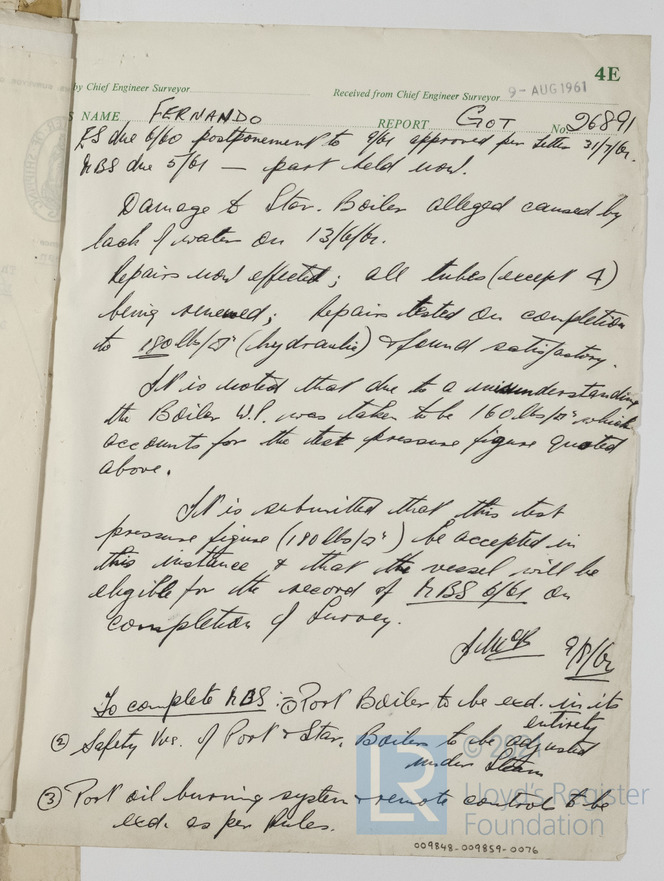 4E
by Chief Engineer Surveyor
Received from Chief Engineer Surveyor 9 - AUG 1961
S NAME FERNANDO REPORT GOT No. 26891
ES due 6/60 postponement to 9/61 approved per letter 31/7/61.
MBS due 5/61 — part held now.
Damage to Star. Boiler alleged caused by
lack of water on 13/6/61.
Repairs now effected; all tubes (except 4)
being renewed; Repairs tested on completion
to 180 lbs/□" (hydraulic) & found satisfactory.
It is noted that due to a misunderstanding
the Boiler W.P. was taken to be 160 lbs/□" which
accounts for the test pressure figure quoted
above.
It is submitted that this test
pressure figure (180 lbs/□") be accepted in
this instance & that the vessel will be
eligible for the record of MBS 6/61 on
completion of Survey.
9/8/61
To complete MBS: ① Port Boiler to be exd. in its
entirety
② Safety Vvs. of Port & Star. Boilers to be adjusted
under Steam
③ Port oil burning system & remote control to be
exd. as per Rules.
© 2021
LR
Lloyd's Register
Foundation
009848-009859-0076